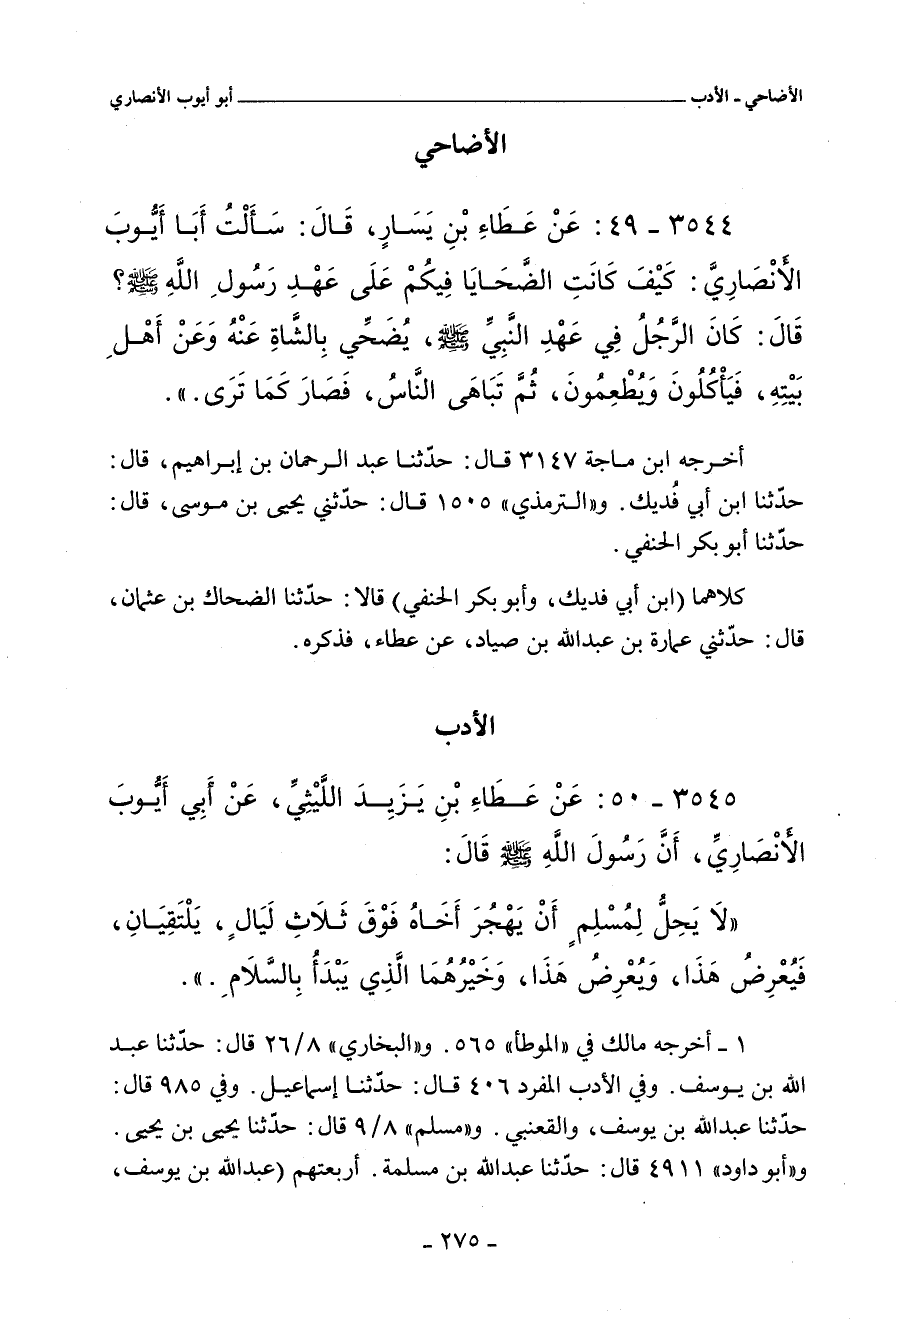 الأضاحي - الأدب ـــــــــــــــــــــــــــــ أبو أيوب الأنصاري
الأضاحي
٣٥٤٤ - ٤٩ : عَنْ عَطَاءِ بْنِ يَسَارٍ، قَالَ: سَأَلْتُ أَبَا أَيُّوبَ
الأَنْصَارِيَّ: كَيْفَ كَانَتِ الضَّحَايَا فِيكُمْ عَلَى عَهْدِ رَسُولِ اللَّهِ ﷺ؟
قَالَ: كَانَ الرَّجُلُ فِي عَهْدِ النَّبِيِّ ﷺ، يُضَحِّي بِالشَّاةِ عَنْهُ وَعَنْ أَهْلِ
بَيْتِهِ، فَيَأْكُلُونَ وَيُطْعِمُونَ، ثُمَّ تَبَاهَى النَّاسُ، فَصَارَ كَمَا تَرَى.».
أخرجه ابن ماجة ٣١٤٧ قال: حدّثنا عبد الرحمان بن إبراهيم، قال:
حدّثنا ابن أبي فُديك. و«الترمذي» ١٥٠٥ قال: حدّثني يحيى بن موسى، قال:
حدّثنا أبو بكر الحنفي.
كلاهما (ابن أبي فديك، وأبو بكر الحنفي) قالا: حدّثنا الضحاك بن عثمان،
قال: حدّثني عمارة بن عبدالله بن صياد، عن عطاء، فذكره.
الأدب
٣٥٤٥ - ٥٠ : عَنْ عَطَاءِ بْنِ يَزِيدَ اللَّيْثِيِّ، عَنْ أَبِي أَيُّوبَ
الأَنْصَارِيِّ، أَنَّ رَسُولَ اللَّهِ ﷺ قَالَ:
«لَا يَحِلُّ لِمُسْلِمٍ أَنْ يَهْجُرَ أَخَاهُ فَوْقَ ثَلَاثِ لَيَالٍ، يَلْتَقِيَانِ،
فَيُعْرِضُ هَذَا، وَيُعْرِضُ هَذَا، وَخَيْرُهُمَا الَّذِي يَبْدَأُ بِالسَّلَامِ.».
١ - أخرجه مالك في «الموطأ» ٥٦٥. و«البخاري» ٢٦/٨ قال: حدّثنا عبد
الله بن يوسف. وفي الأدب المفرد ٤٠٦ قال: حدّثنا إسماعيل. وفي ٩٨٥ قال:
حدّثنا عبدالله بن يوسف، والقعنبي. و«مسلم» ٩/٨ قال: حدّثنا يحيى بن يحيى.
و«أبو داود» ٤٩١١ قال: حدّثنا عبدالله بن مسلمة. أربعتهم (عبدالله بن يوسف،
- ٢٧٥ -